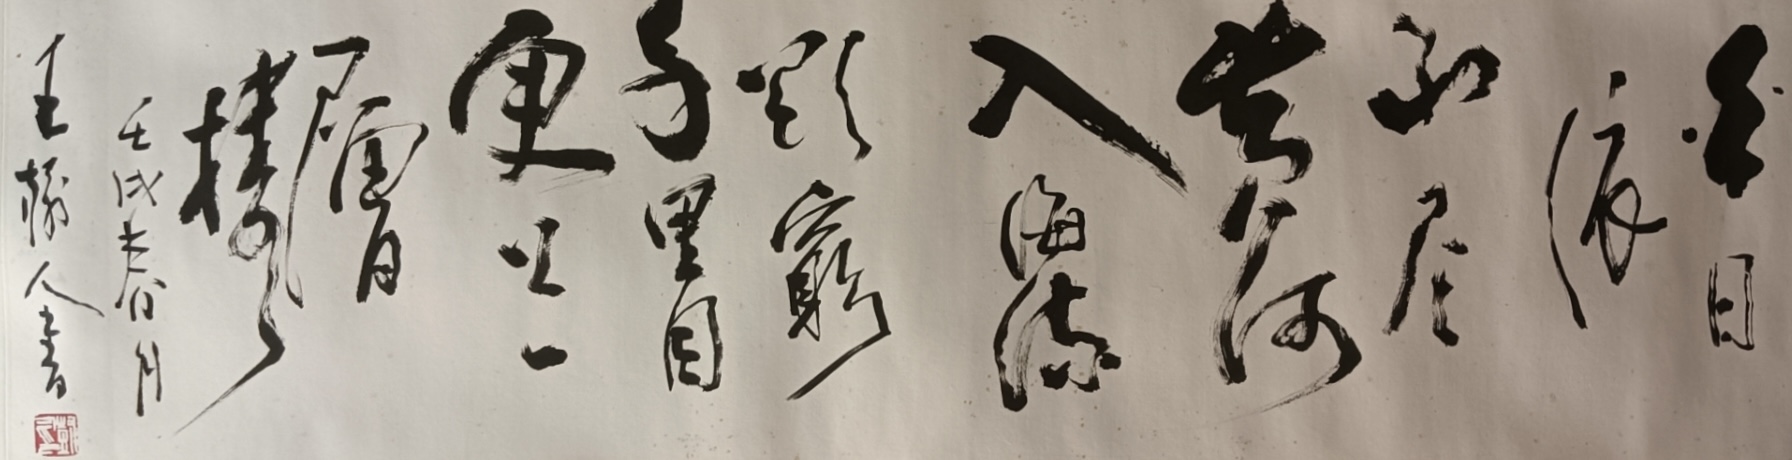 白日
依
山尽
黄河
入海流
欲窮
千里目
更上一
層
樓
壬戌春月
王人書